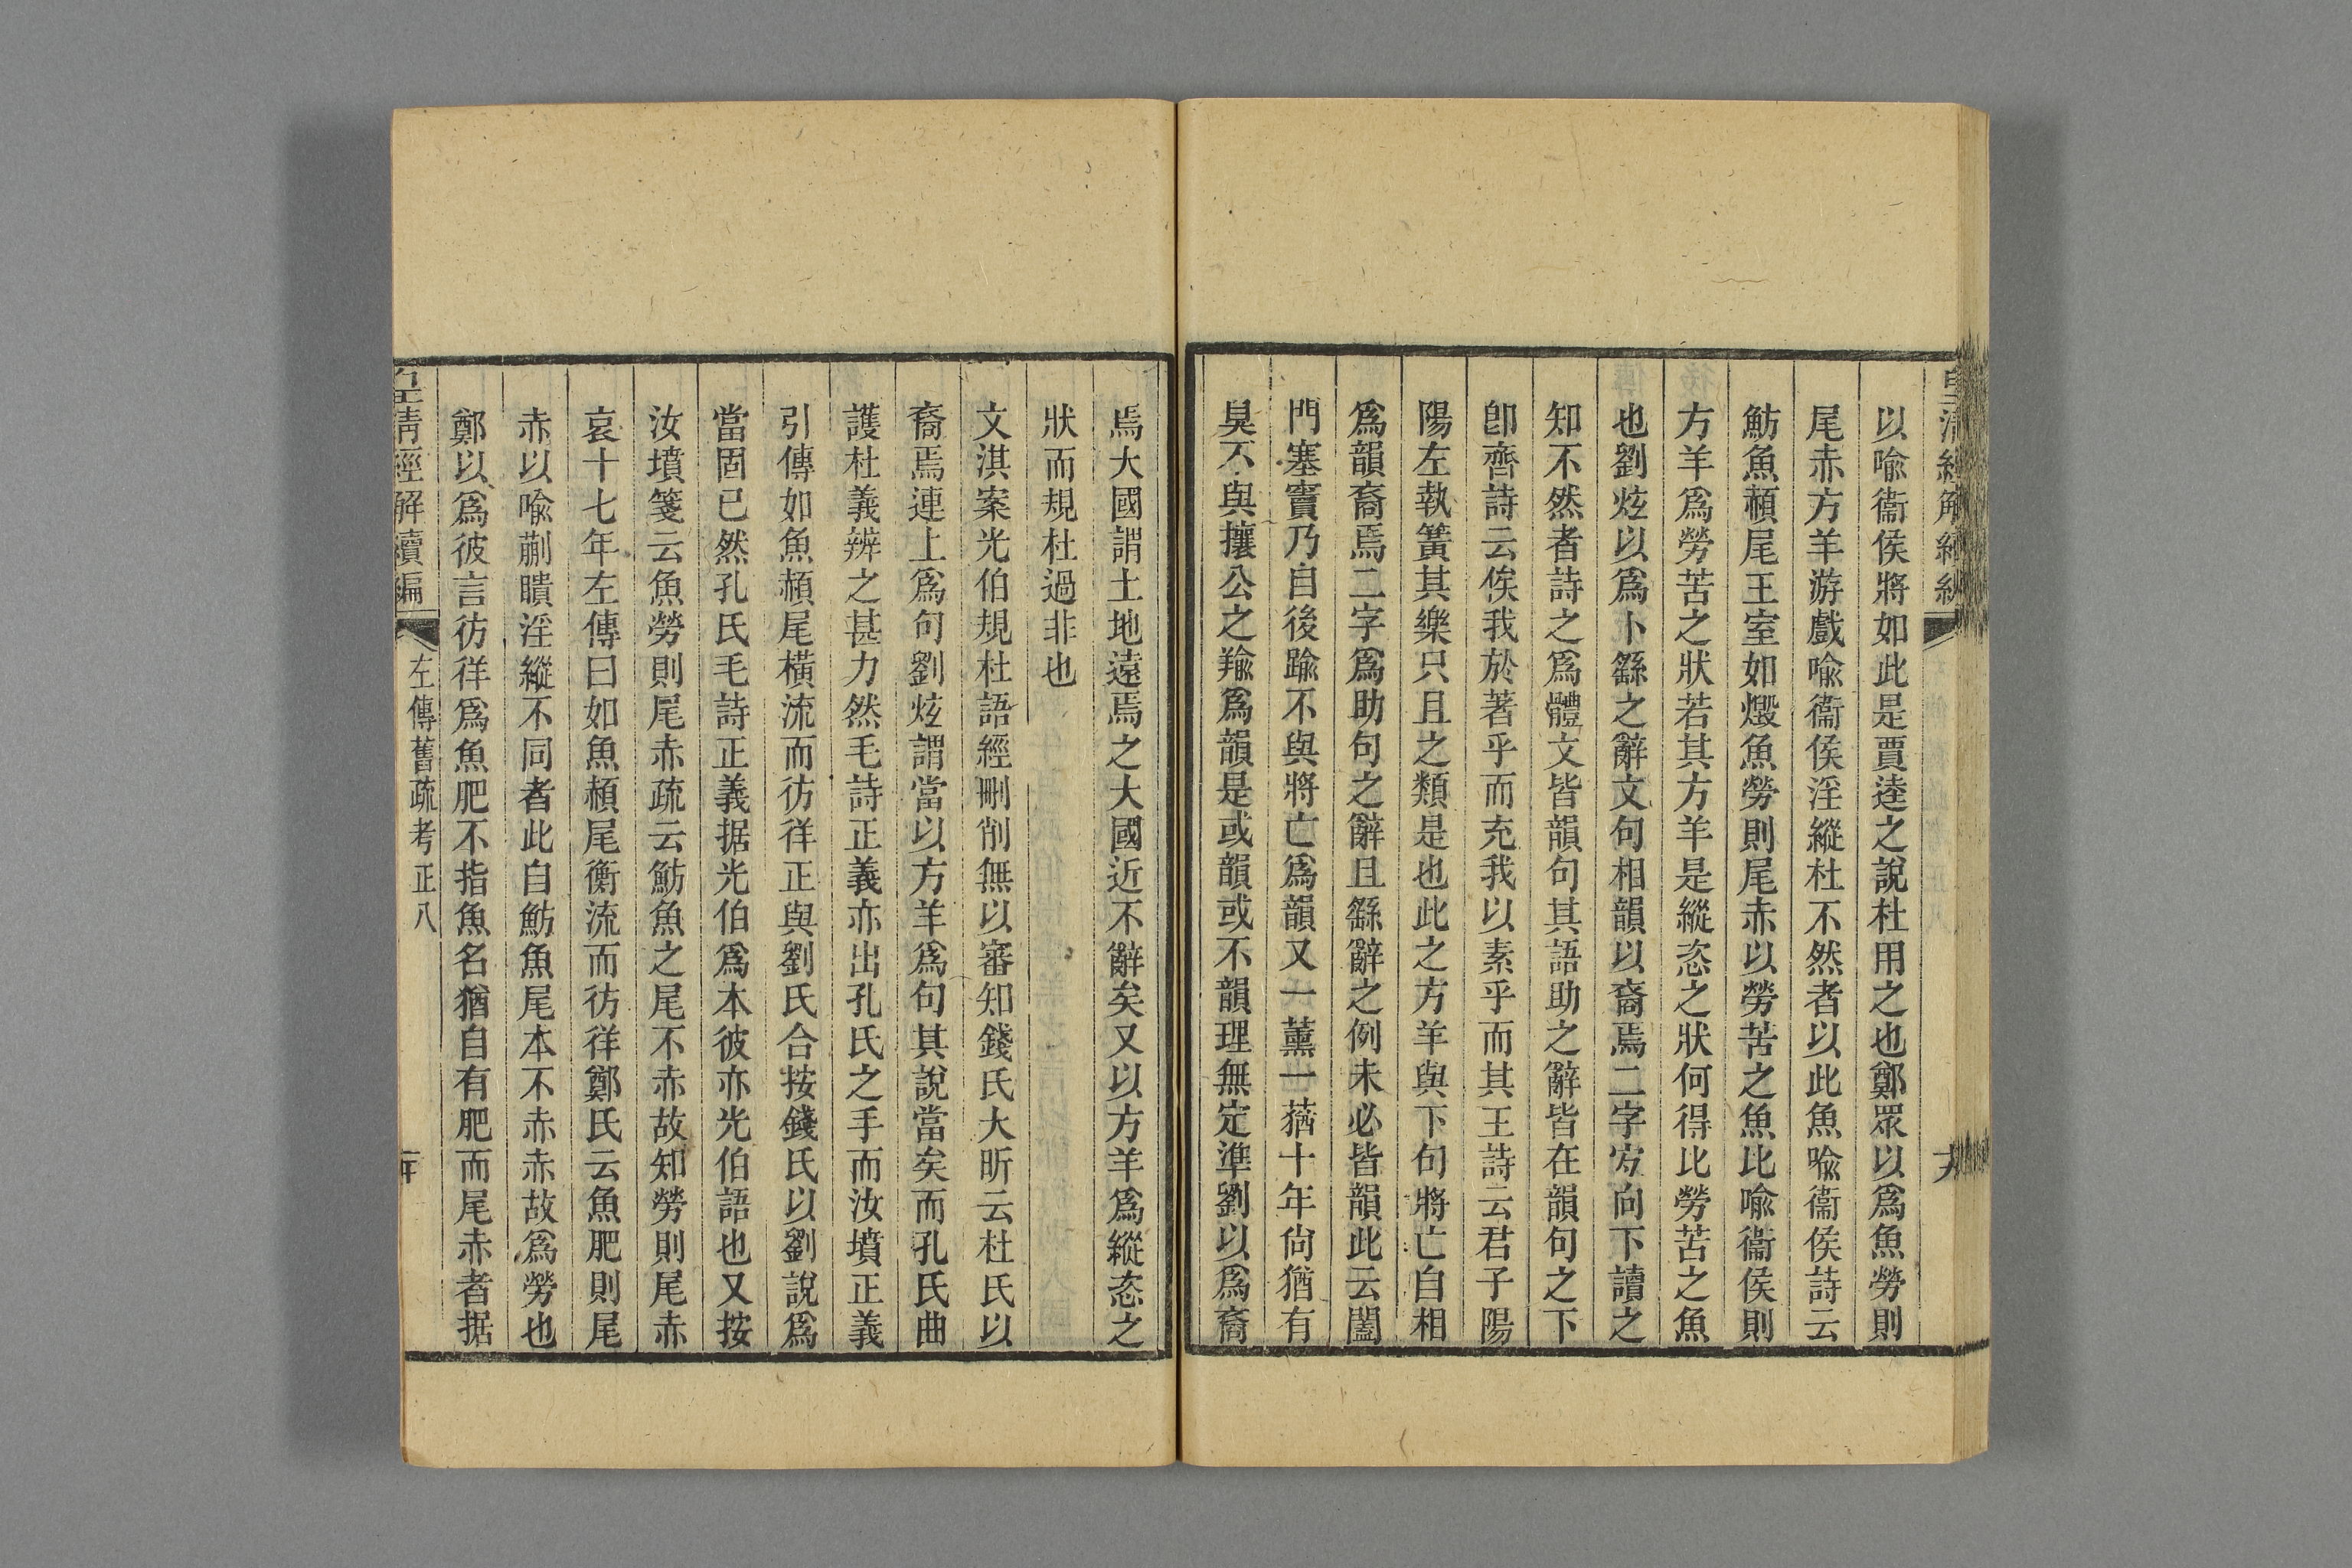 以喻衞侯將如此是賈逵之說杜用之也鄭眾以爲魚勞則
尾赤方羊游戲喻衞侯淫縱杜不然者以此魚喻衞侯詩云
魴魚頳尾王室如燬魚勞則尾赤以勞苦之魚比喻衞侯則
方羊爲勞苦之狀若其方羊是縱恣之狀何得比勞苦之魚
也劉炫以爲卜繇之辭文句相韻以裔焉二字宐向下讀之
知不然者詩之爲體文皆韻句其語助之辭皆在韻句之下
卽齊詩云俟我於著乎而充我以素乎而其王詩云君子陽
陽左執簧其樂只且之類是也此之方羊與下句將亡自相
爲韻裔焉二字爲助句之辭且繇辭之例未必皆韻此云闔
門塞竇乃自後踰不與將亡爲韻又一薰一蕕十年尙猶有
臭不與攘公之羭爲韻是或韻或不韻理無定準劉以爲裔
焉大國謂土地遠焉之大國近不辭矣又以方羊爲縱恣之
狀而規杜過非也
文淇案光伯規杜語經刪削無以審知錢氏大昕云杜氏以
裔焉連上爲句劉炫謂當以方羊爲句其說當矣而孔氏曲
護杜義辨之甚力然毛詩正義亦出孔氏之手而汝墳正義
引傳如魚頳尾橫流而彷徉正與劉氏合按錢氏以劉說爲
當固已然孔氏毛詩正義据光伯爲本彼亦光伯語也又按
汝墳箋云魚勞則尾赤疏云魴魚之尾不赤故知勞則尾赤
哀十七年左傳曰如魚頳尾衡流而彷徉鄭氏云魚肥則尾
赤以喻蒯瞶淫縱不同者此自魴魚尾本不赤赤故爲勞也
鄭以爲彼言彷徉爲魚肥不指魚名猶自有肥而尾赤者据
皇清經解續編
左傳舊疏考正八